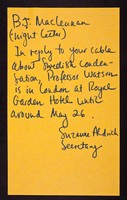 B.J. Maclennan
(night letter)
In reply to your cable
about Swedish Conden-
sation, Professor Watson
is in London at Royal
Garden Hotel until
around May 26.
Suzanne Aldrich
Secretary